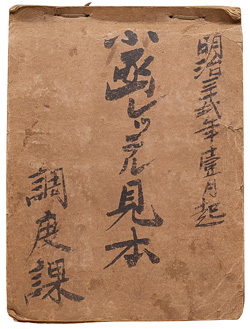 明治三十弐年壹月起
小函レッテル見本
調度課